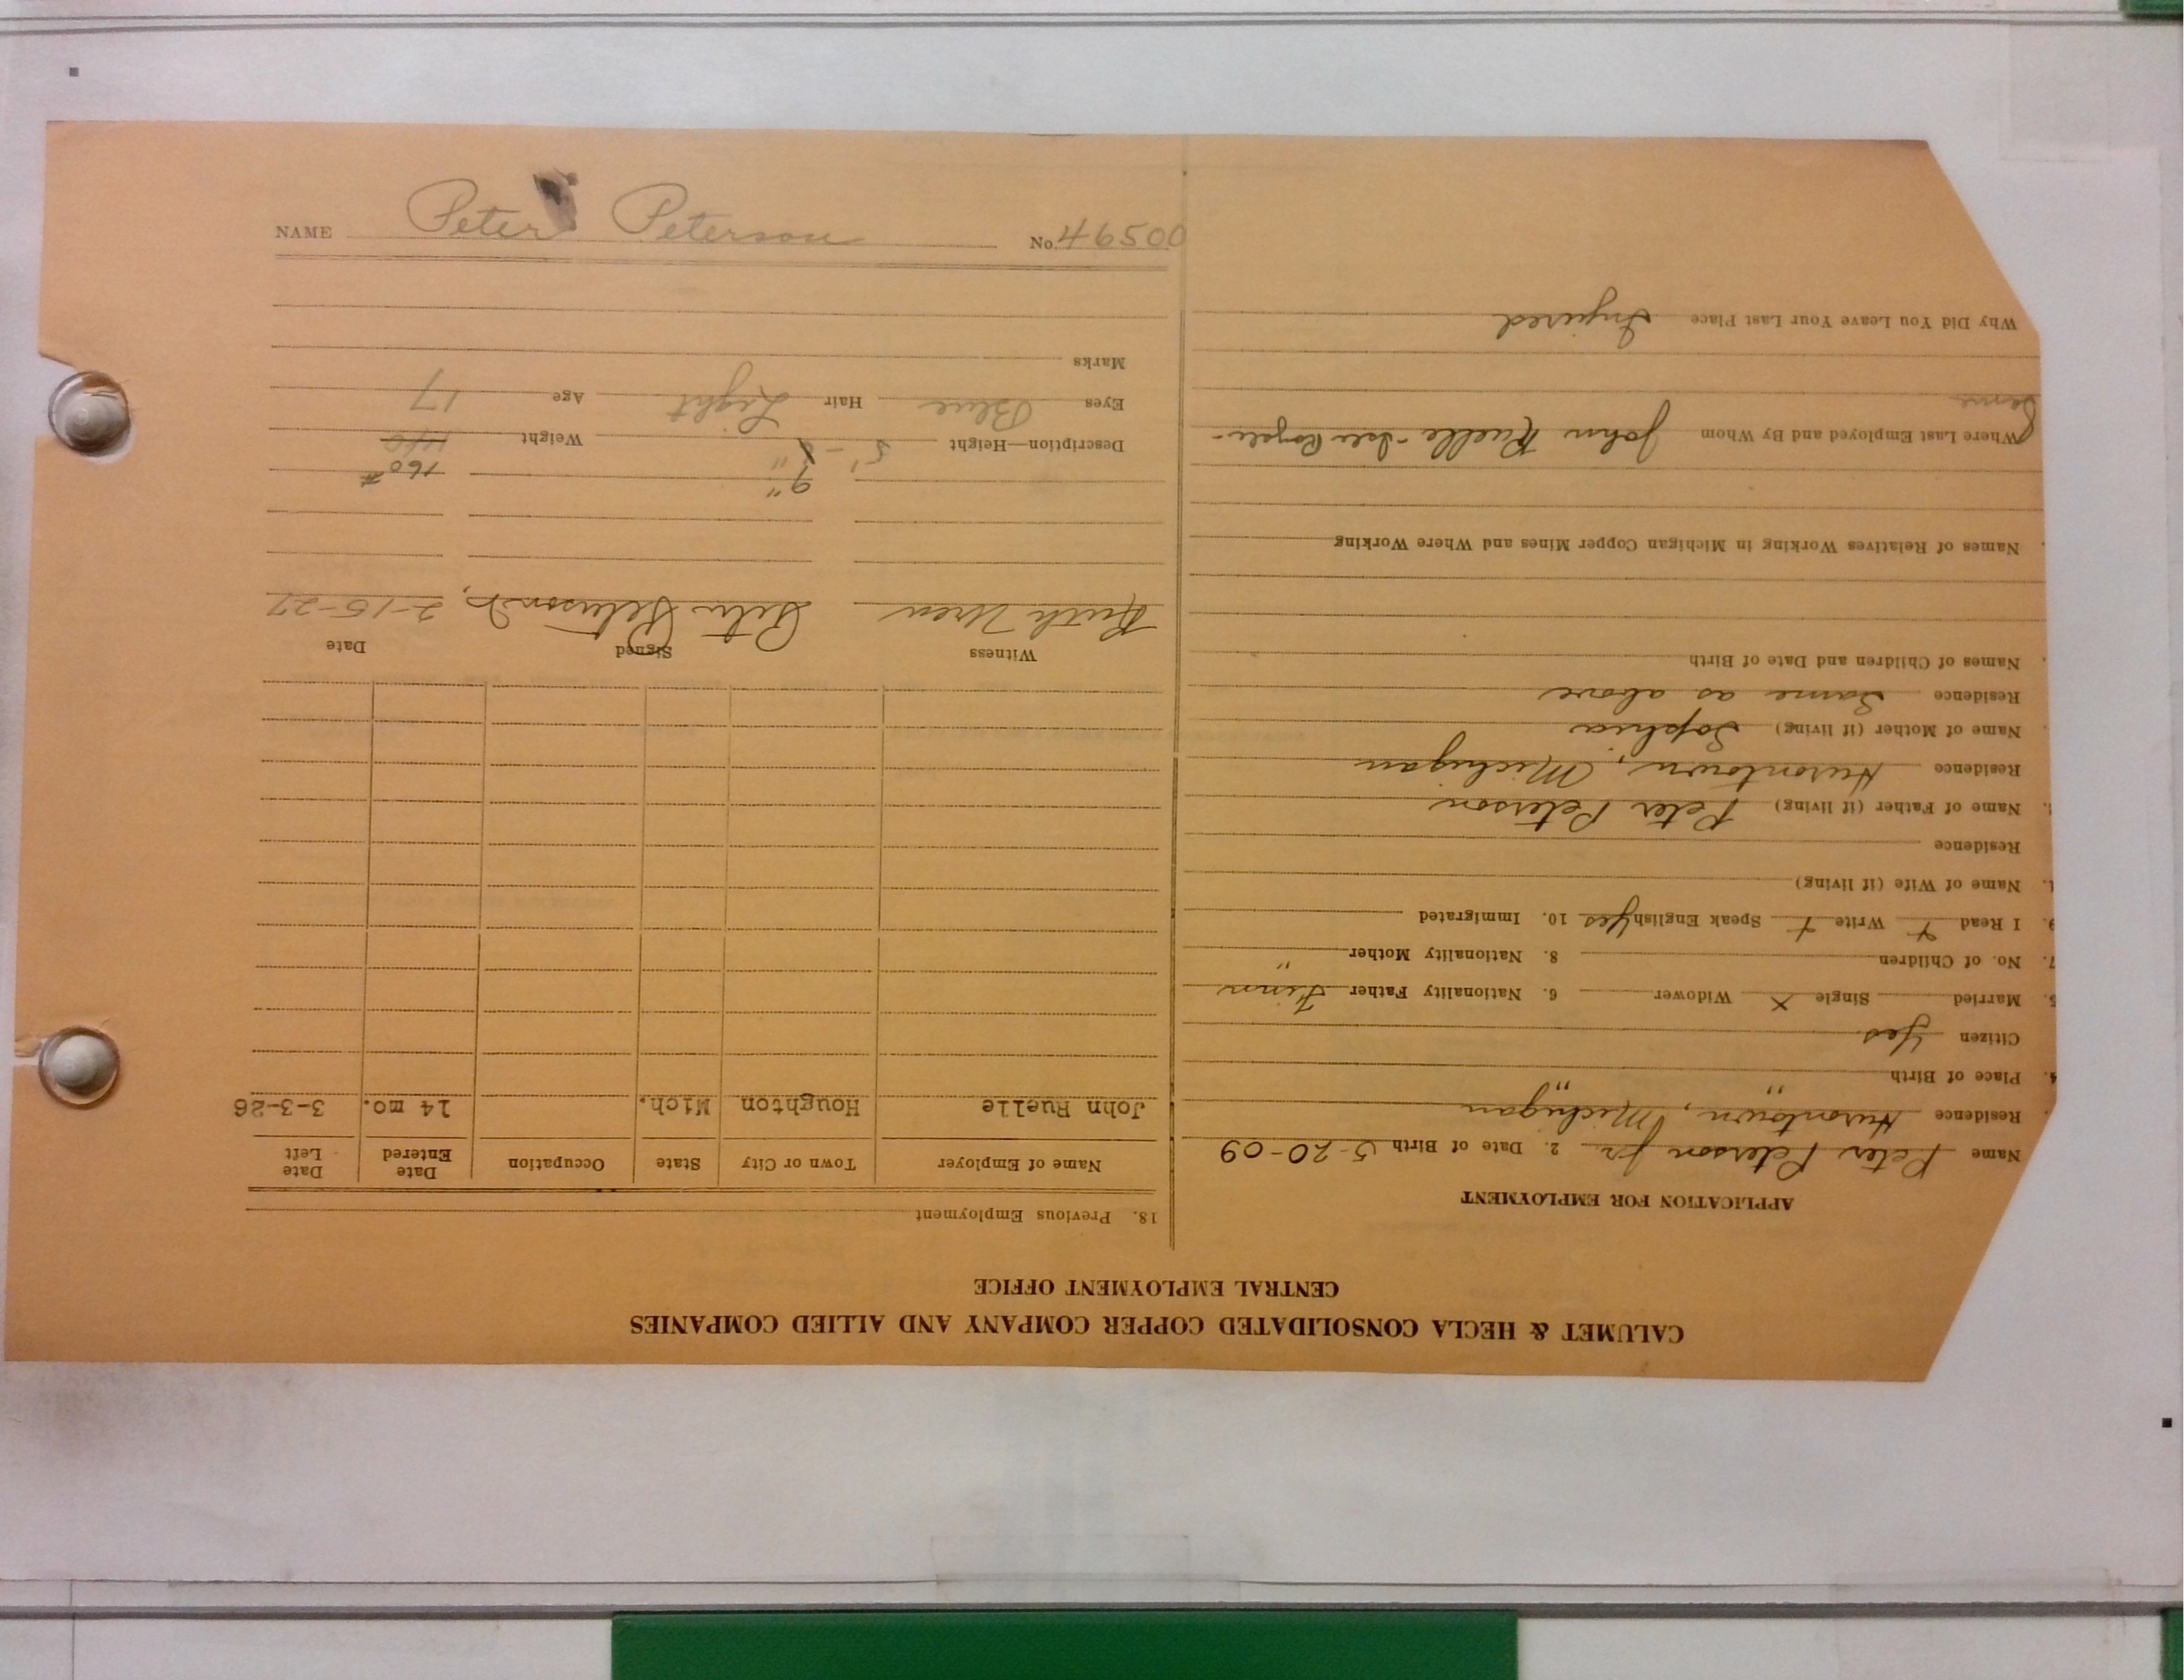 CALUMET & HECLA CONSOLIDATED COPPER COMPANY AND ALLIED COMPANIES
CENTRAL EMPLOYMENT OFFICE
APPLICATION FOR EMPLOYMENT
Name Peter Peterson Jr 2. Date of Birth 5-20-09
Residence Hurontown, Michigan
4. Place of Birth " "
Citizen Yes
5. Married Single X Widower 6. Nationality Father Finn
7. No. of Children 8. Nationality Mother "
9. I Read + Write + Speak English Yes 10. Immigrated
1. Name of Wife (if living)
Residence
2. Name of Father (if living) Peter Peterson
Residence Hurontown, Michigan
. Name of Mother (if living) Sophia
Residence Same as above
. Names of Children and Date of Birth
. Names of Relatives Working in Michigan Copper Mines and Where Working
Where Last Employed and By Whom John Ruelle
Same
Why Did You Leave Your Last Place Injured
18. Previous Employment
Name of Employer Town or City State Occupation Date Entered Date Left
John Ruelle Houghton Mich. 14 mo. 3-3-26
Witness Signed Date
Ruth Uren Peter Peterson Jr, 2-15-27
9" 160#
Description—Height 5'-8" Weight 140
Eyes Blue Hair Light Age 17
Marks
NAME Peter Peterson No. 46500